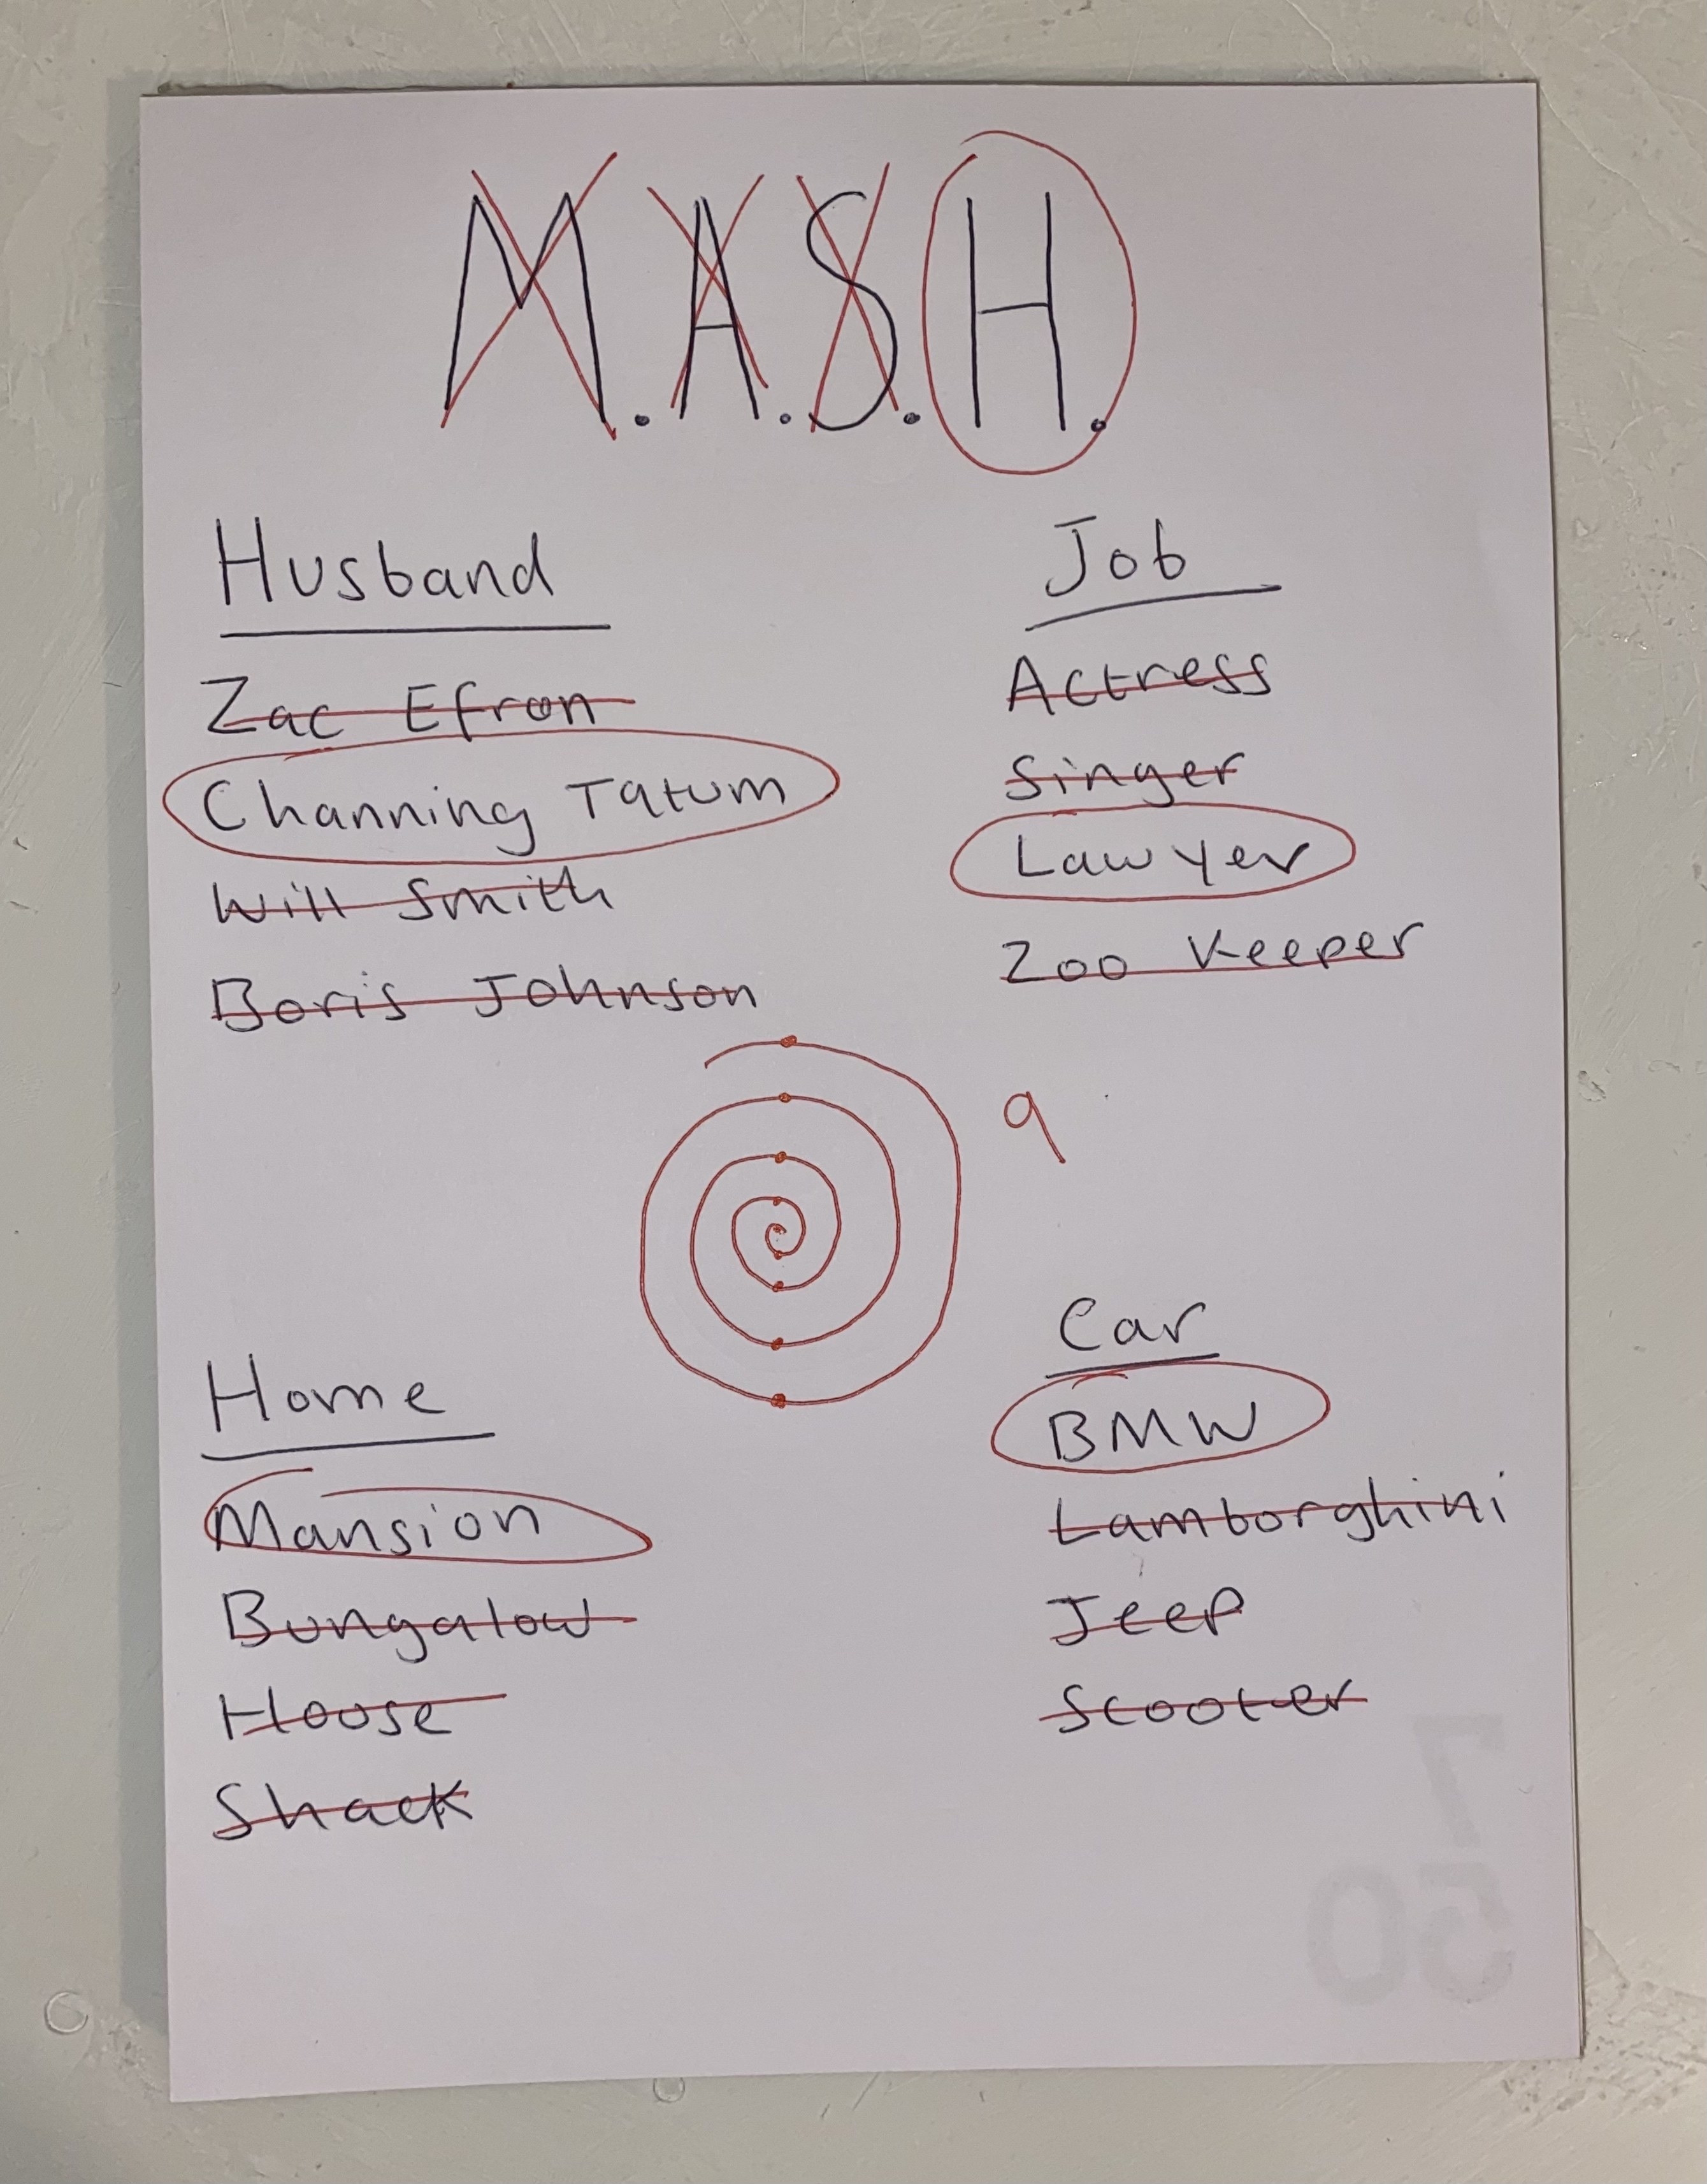 M.A.S.H.
Husband
Zac Efron
Channing Tatum
Will Smith
Boris Johnson
Job
Actress
Singer
Lawyer
Zoo Keeper
9
Home
Mansion
Bungalow
House
Shack
Car
BMW
Lamborghini
Jeep
Scooter
7
50